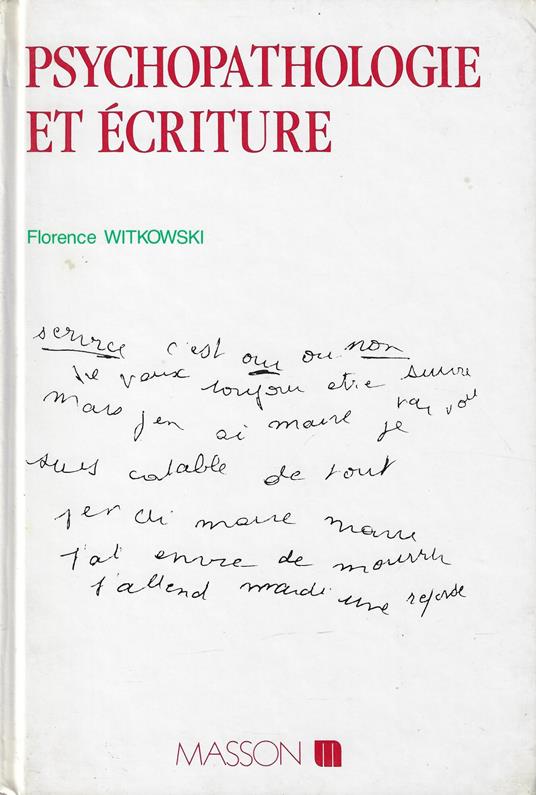 PSYCHOPATHOLOGIE
ET ÉCRITURE
Florence WITKOWSKI
service c'est oui ou non
je veux toujour etre suivre
Mais j'en ai marre je par vou
suis catable de tout
j'en ai marre marre
j'ai envie de mourrir
j'attend mardi une reponse
MASSON m